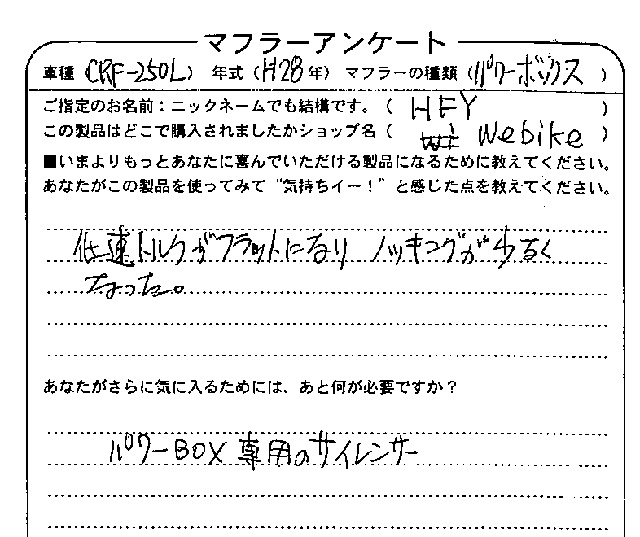 マフラーアンケート
車種(CRF-250L) 年式(H28年) マフラーの種類(パワーボックス)
ご指定のお名前:ニックネームでも結構です。( HFY )
この製品はどこで購入されましたかショップ名( Webike )
■いまよりもっとあなたに喜んでいただける製品になるために教えてください。
あなたがこの製品を使ってみて“気持ちイー!”と感じた点を教えてください。
低速トルクがフラットになり ノッキングが少なく
なった。
あなたがさらに気に入るためには、あと何が必要ですか?
パワーBOX専用のサイレンサー